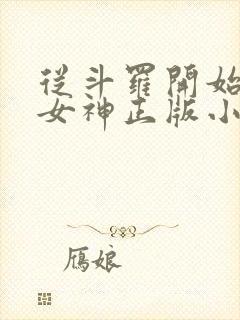 從斗羅開始
女神正版小
鴈娘